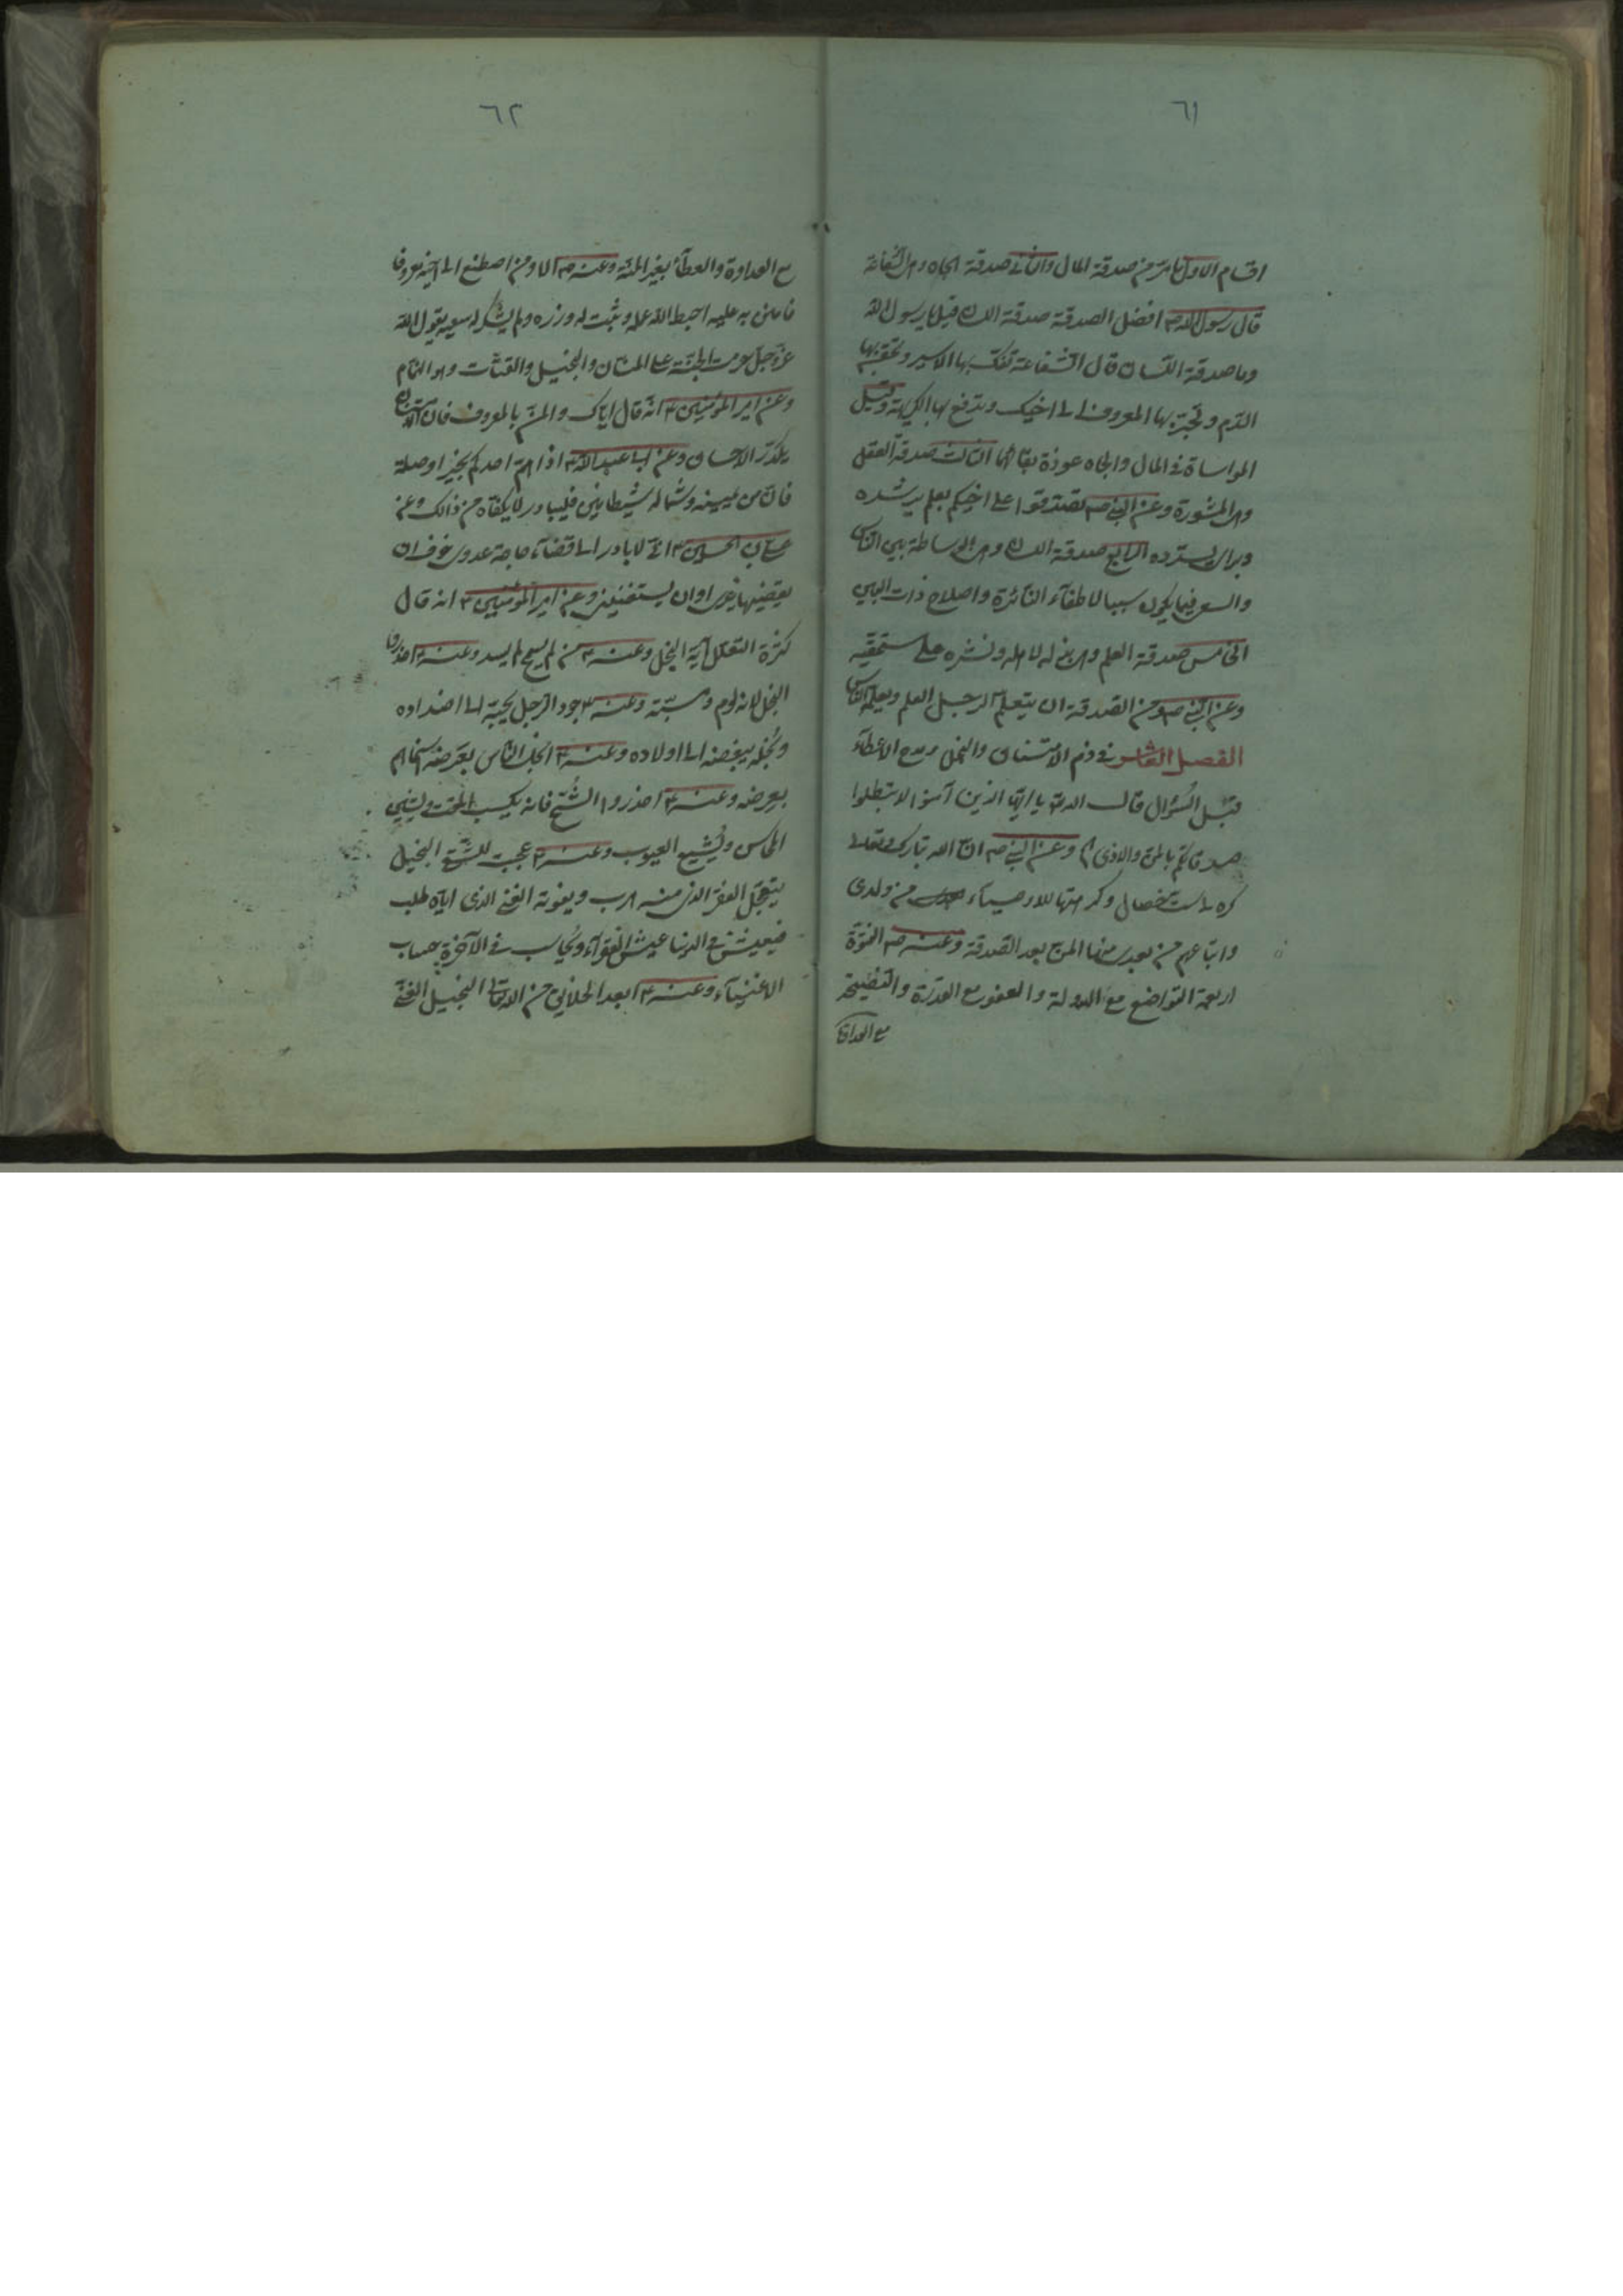 ٦١
اقسام الاول ما مر من صدقة المال والثانى صدقة الجاه وهى الشفاعة
قال رسول الله ص افضل الصدقة صدقة اللسان قيل يا رسول الله
وما صدقة اللسان قال الشفاعة تفك بها الاسير وتحقن بها
الدم وتجر بها المعروف الى اخيك وتدفع بها الكريهة وقيل
المواساة فى المال والجاه عوذة بقائهما الثالث صدقة العقل
وهى المشورة وعن النبى ص تصدقوا على اخيكم بعلم يرشده
وبراى يسدده الرابع صدقة اللسان وهى الوساطة بين الناس
والسعى فيما يكون سببا لاطفاء النائرة واصلاح ذات البين
الخامس صدقة العلم وهى بذله لاهله ونشره على مستحقيه
وعن النبى ص ومن الصدقة ان يتعلم الرجل العلم ويعلمه الناس
الفصل العاشر فى ذم الامتنان والبخل ومدح الاعطاء
قبل السؤال قال الله تعالى يا ايها الذين آمنوا لا تبطلوا
صدقاتكم بالمن والاذى وعن النبى ص ان الله تبارك وتعالى
كره لى ست خصال وكرهتها للاوصياء من ولدى
واتباعهم من بعدى منها المن بعد الصدقة وعنه ص الفتوة
اربعة التواضع مع الدولة والعفو مع القدرة والنصيحة
مع العداوة
٦٢
مع العداوة والعطاء بغير المنة وعنه ص الا ومن اصطنع الى اخيه معروفا
فامتن به عليه احبط الله عمله وثبت له وزره ولم يشكر له سعيه يقول الله
عز وجل حرمت الجنة على المنان والبخيل والقتات وهو النمام
وعن امير المؤمنين ع انه قال اياك والمن بالمعروف فان الامتنان
يكدر الاحسان وعن ابى عبد الله ع اذا هم احدكم بخير او صلة
فان عن يمينه وشماله شيطانين فليبادر لا يكفاه عن ذالك وعن
على بن الحسين ع انى لابادر الى قضاء حاجة عدوى خوف ان
يقضيها غيرى او ان يستغنى عنى وعن امير المؤمنين ع انه قال
كثرة التعلل آية البخل وعنه ع من لم يسمح لم يسد وعنه ع احذروا
البخل فانه لوم ومسبة وعنه ع جود الرجل يحببه الى اضداده
وبخله يبغضه الى اولاده وعنه ع ابخل الناس بعرضه اسخاهم
بعرضه وعنه ع احذروا الشح فانه يكسب المقت ويشين
المحاسن ويشيع العيوب وعنه ع عجبت للشقى البخيل
يتعجل الفقر الذى منه هرب ويفوته الغنى الذى اياه طلب
فيعيش فى الدنيا عيش الفقراء ويحاسب فى الآخرة حساب
الاغنياء وعنه ع ابعد الخلايق من الله تعالى البخيل الغنى